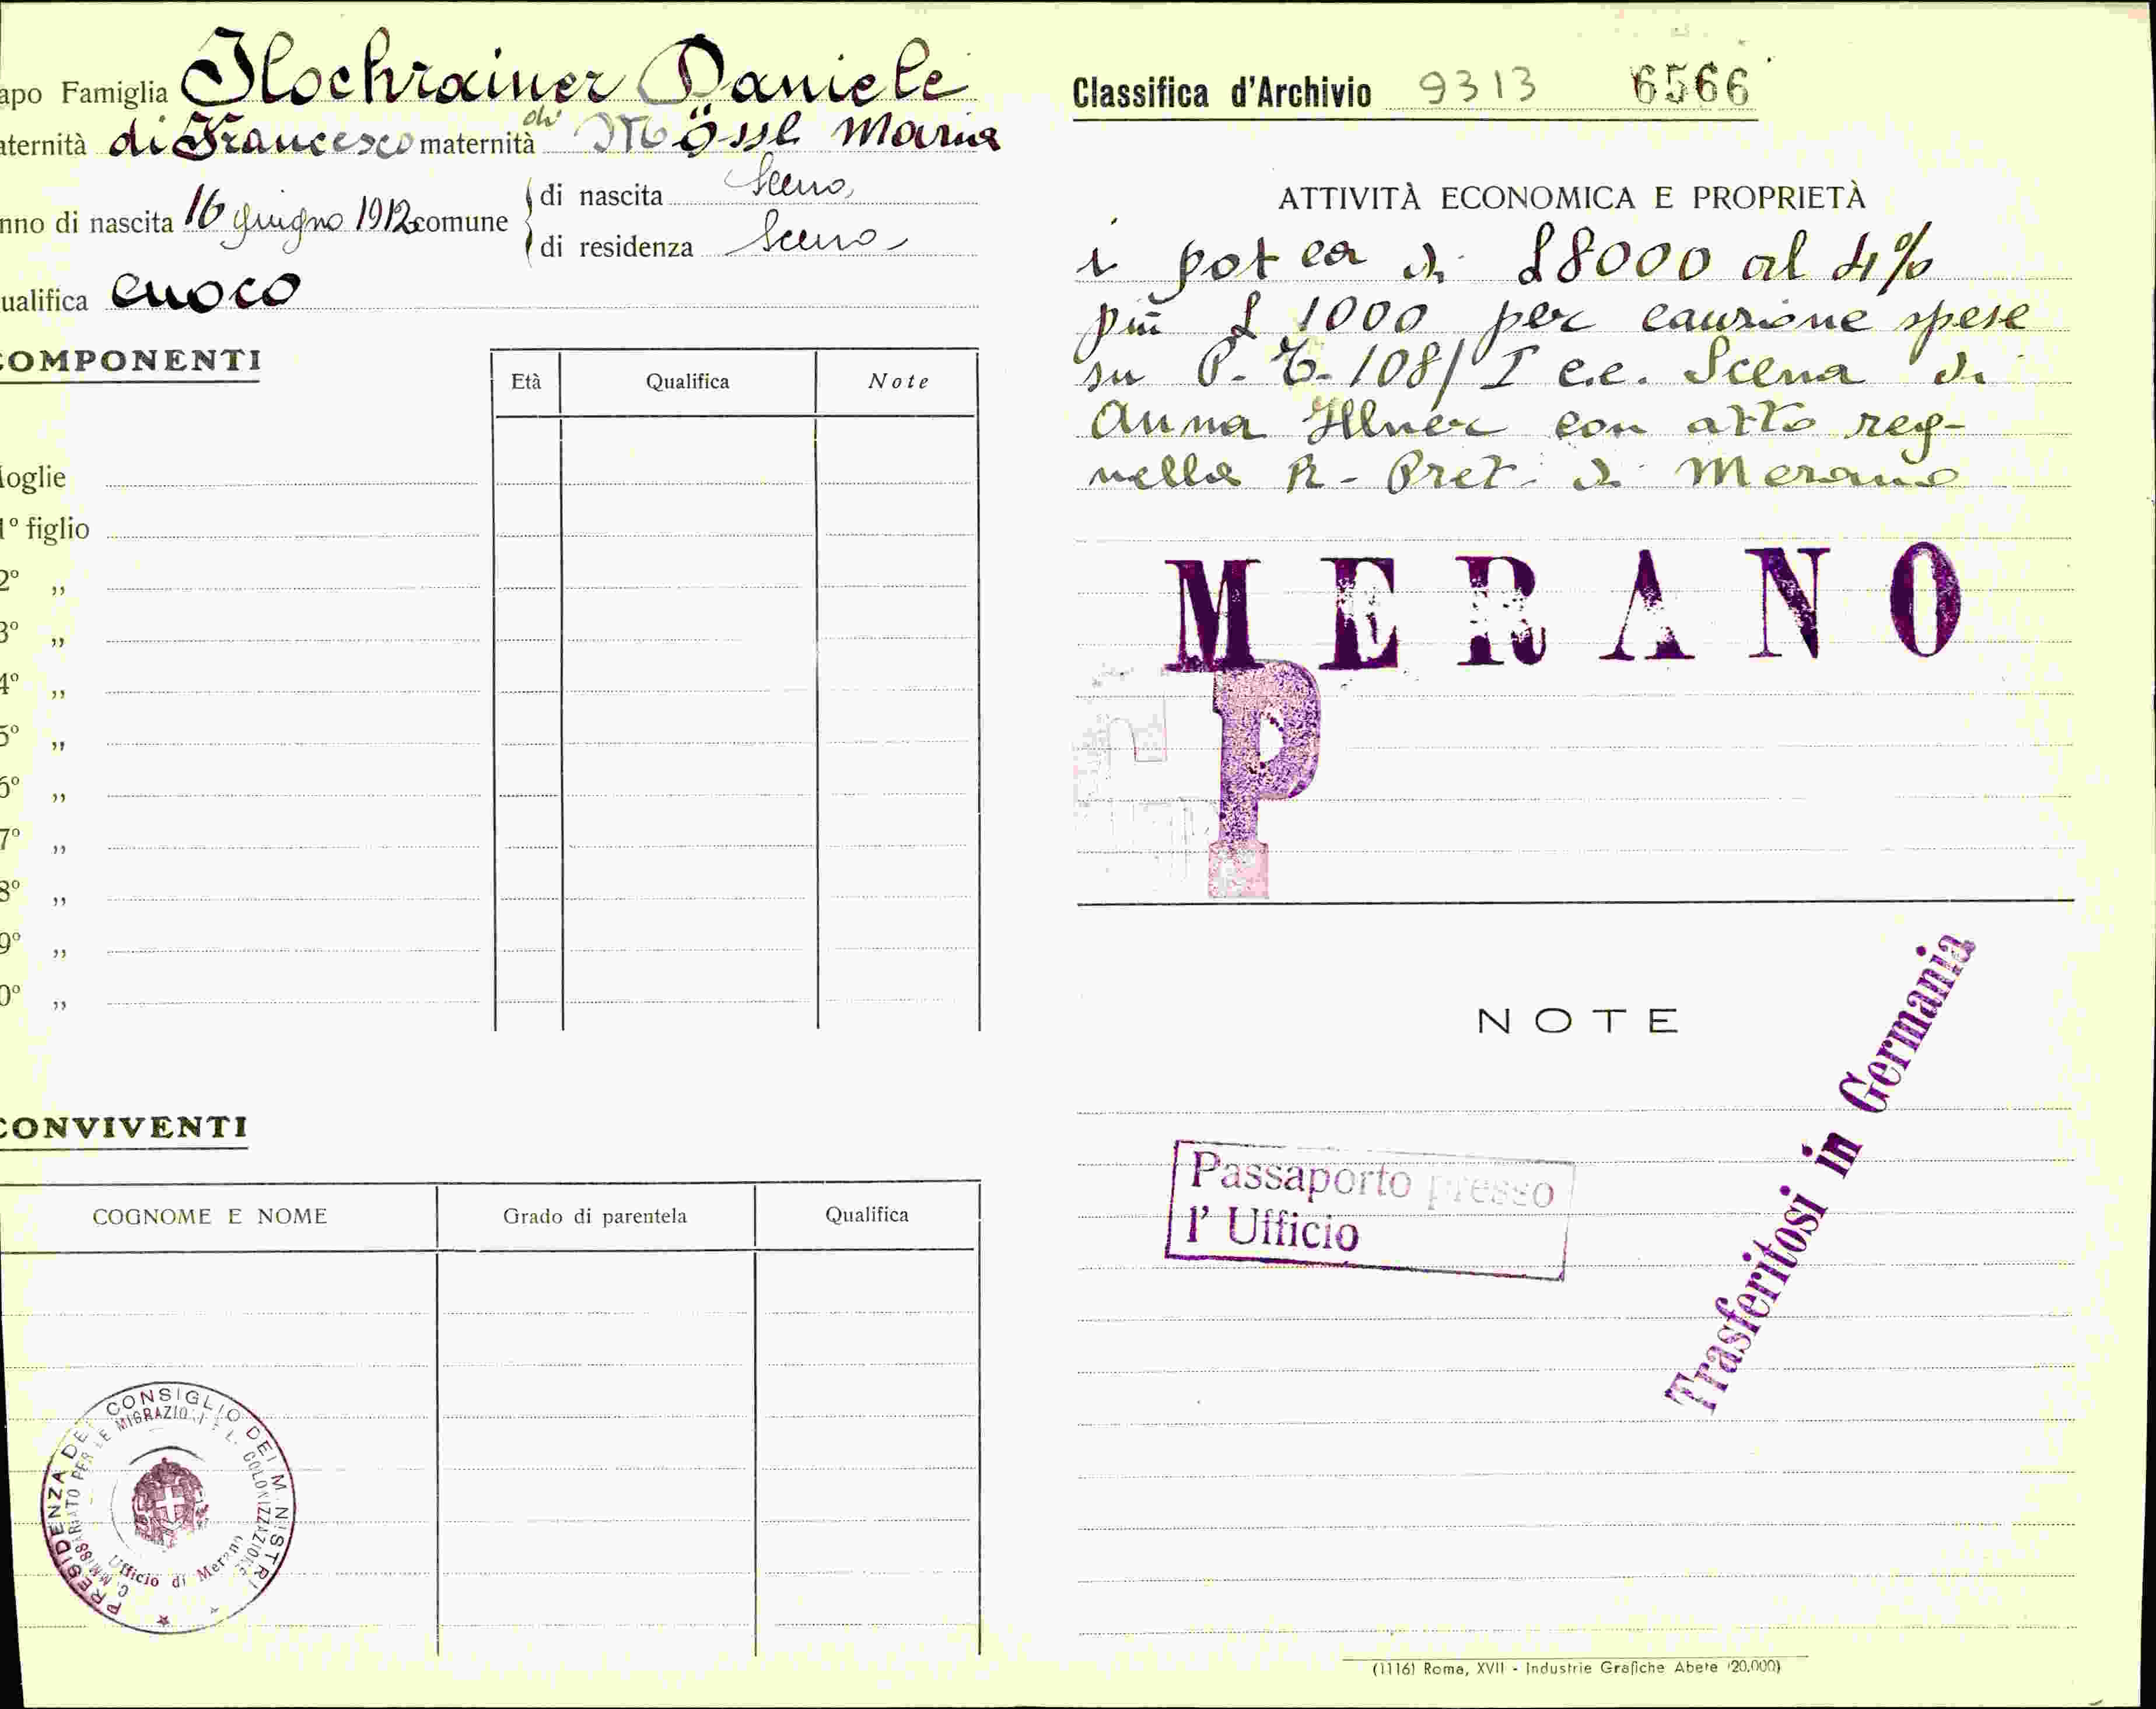 apo Famiglia Hochrainer Daniele
aternità di Francesco maternità di Mössl Maria
nno di nascita 16 giugno 1912 comune
di nascita Sceno
di residenza Sceno
ualifica cuoco
COMPONENTI
Età Qualifica Note
loglie
1º figlio
2º „
3º „
4º „
5º „
6º „
7º „
8º „
9º „
0º „
CONVIVENTI
COGNOME E NOME Grado di parentela Qualifica
PRESIDENZA DEL CONSIGLIO DEI MINISTRI
COMMISSARIATO PER LE MIGRAZIONI E L. COLONIZZAZIONE
Ufficio di Merano
Classifica d'Archivio 9313 6566
ATTIVITÀ ECONOMICA E PROPRIETÀ
ipoteca di £8000 al 4%
più £ 1000 per cauzione spese
su P. T. 108/I c.c. Scena di
Anna Illner con atto reg-
nella R. Pret. di Merano
MERANO
P
NOTE
Trasferitosi in Germania
Passaporto presso
l' Ufficio
(1116) Roma, XVII - Industrie Grafiche Abete (20.000)